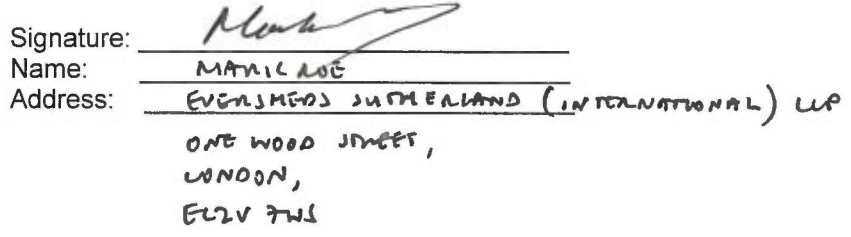 Signature: Mark
Name: MARK ROE
Address: EVERSHEDS SUTHERLAND (INTERNATIONAL) LLP
ONE WOOD STREET,
LONDON,
EC2V 7WS